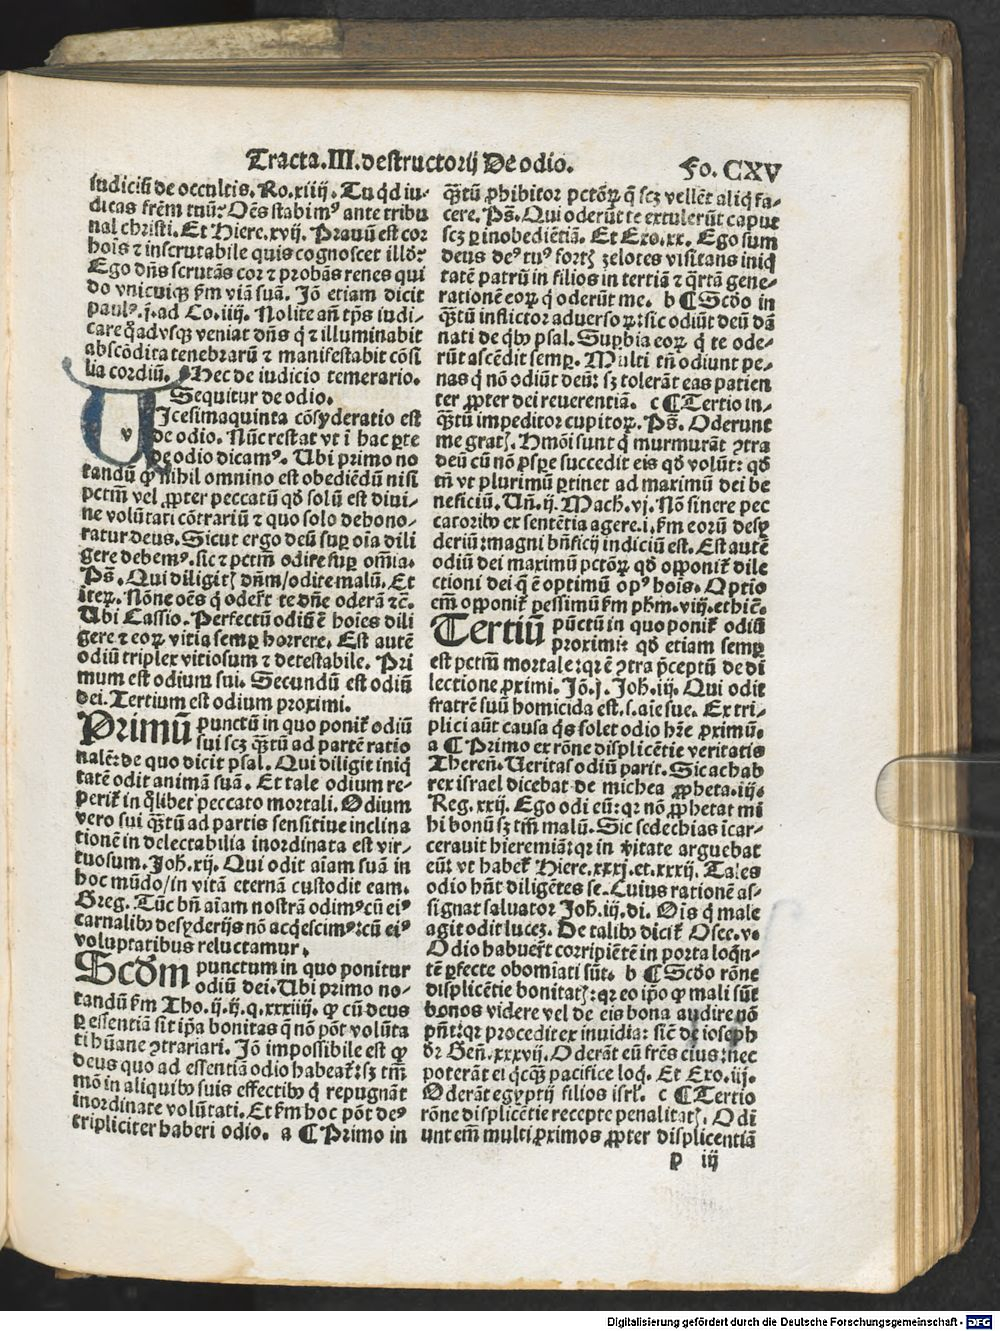 Tracta.III.destructorij De odio.
Fo. CXV
iudiciū de occultis. Ro.xiiij. Tu qd iu-
dicas frēm tuū: Oēs stabimꝰ ante tribu
nal christi. Et Hiere.xvij. Prauū est cor
hoīs ⁊ inscrutabile quis cognoscet illō:
Ego dn̄s scrutās cor ⁊ probās renes qui
do vnicuiqꝫ ẜm viā suā. Jō etiam dicit
paulꝰ.j.ad Co.iiij. Nolite an̄ tp̄s iudi-
care qȣadvsqꝫ veniat dn̄s q̇ ⁊ illuminabit
abscōdita tenebrarū ⁊ manifestabit cōsi
lia cordiū. Hec de iudicio temerario.
Sequitur de odio.
Vicesimaquinta cōsyderatio est
de odio. Nūc restat vt ī hac ꝑte
de odio dicamꝰ. Ubi primo no
tandū ꝙ nihil omnino est obediēdū nisi
pctm̄ vel ꝓpter peccatū qd̄ solū est diui-
ne volūtati cōtrariū ⁊ quo solo dehono-
ratur deus. Sicut ergo deū suꝑ oīa dili
gere debemꝰ. sic ⁊ pctm̄ odire suꝑ om̄ia.
Ps̄. Qui diligitꝭ dn̄m/odite malū. Et
iteꝝ. Nōne oēs q̇ oderūt te dn̄e oderā ⁊c̄.
Ubi Cassio. Perfectū odiū ē hoīes dili
gere ⁊ eoꝝ vitia semꝑ horrere. Est autē
odiū triplex vitiosum ⁊ detestabile. Pri
mum est odium sui. Secundū est odiū
dei. Tertium est odium proximi.
Primū punctū in quo ponit᷑ odiū
sui scꝫ qȝtū ad partē ratio
nalē: de quo dicit psal. Qui diligit iniq̇
tatē odit animā suā. Et tale odium re-
perit᷑ in qȣlibet peccato mortali. Odium
vero sui qȝtū ad partis sensitiue inclina
tionē in delectabilia inordinata est vir-
tuosum. Joh̄.xij. Qui odit aīam suā in
hoc mūdo/in vitā eternā custodit eam.
Greg. Tūc bn̄ aīam nostrā odimꝰ cū eiꝰ
carnalibꝰ desyderijs nō acq̇escimꝰ: cū eiꝰ
voluptatibus reluctamur.
Scd̄m punctum in quo ponitur
odiū dei. Ubi primo no-
tandū ẜm Tho.ij.ij.q.xxxiiij. ꝙ cū deus
ꝑ essentiā sit ip̄a bonitas q̄ nō pōt volūta
ti hūane ꝯtrariari. Jō impossibile est ꝙ
deus quo ad essentiā odio habeat᷑: sꝫ tm̄
mō in aliquibꝰ suis effectibꝰ q̇ repugnāt
inordinate volūtati. Et ẜm hoc pōt deꝰ
tripliciter haberi odio. a ¶ Primo in
qȝtū ꝓhibitor pctōꝝ q̄ scꝫ vellēt aliq̇ fa-
cere. Ps̄. Qui oderūt te extulerūt caput
scꝫ ꝑ inobediētiā. Et Exo.xx. Ego sum
deus deꝰ tuꝰ fortꝭ zelotes visitans iniq̇
tatē patrū in filios in tertiā ⁊ q̄rtā gene-
rationē eoꝝ q̇ oderūt me. b ¶ Scd̄o in
qȝtū inflictor aduersoꝝ: sic odiūt deū dā
nati de q̇bꝰ psal. Suꝑbia eoꝝ q̇ te ode-
rūt ascēdit semꝑ. Multi tn̄ odiunt pe-
nas q̇ nō odiūt deū: sꝫ tolerāt eas patien
ter ꝓpter dei reuerentiā. c ¶ Tertio in-
qȝtū impeditor cupitoꝝ. Ps̄. Oderunt
me gratꝭ. Hm̄oi sunt q̇ murmurāt ꝯtra
deū cū nō ꝓsꝑe succedit eis qd̄ volūt: qd̄
tn̄ vt plurimū ꝑtinet ad maximū dei be
neficiū. Un̄.ij. Mach̄.vj. Nō sinere pec
catoribꝰ ex sentētia agere.i.ẜm eorū desy
deriū: magni bn̄ficij indiciū est. Est autē
odiū dei maximū pctōꝝ qd̄ opponit᷑ dile
ctioni dei q̄ ē optimū opꝰ hoīs. Optīo
em̄ opponit᷑ pessimū ẜm ph̄m.viij.ethic̄.
Tertiū pūctū in quo ponit᷑ odiū
proximi: qd̄ etiam semꝑ
est pctm̄ mortale: qꝛ ē ꝯtra p̄ceptū de di
lectione ꝓximi. Jō.j. Joh̄.iij. Qui odit
fratrē suū homicida est.s.aīe sue. Ex tri-
plici aūt causa q̇s solet odio hr̄e ꝓximū.
a ¶ Primo ex rōne displicētie veritatis
Theren̄. Ueritas odiū parit. Sic achab
rex israel dicebat de michea ꝓpheta.iij.
Reg.xxij. Ego odi eū: qꝛ nō ꝓphetat mi
hi bonū sꝫ tm̄ malū. Sic sedechias īcar-
cerauit hieremiā: qꝛ in v̓itate arguebat
eū: vt habet᷑ Hiere.xxxj.et.xxxij. Tales
odio hn̄t diligētes se. Cuius rationē as-
signat saluator Joh̄.iij.di. Oīs q̇ male
agit odit luceꝫ. De talibꝰ dicit᷑ Osee.v.
Odio habuer̄t corripiētē in porta loq̄n-
tē ꝑfecte obomiati sūt. b ¶ Scd̄o rōne
displicētie bonitatꝭ: qꝛ eo ip̄o ꝙ mali sūt
bonos videre vel de eis bona audire nō
pn̄t: qꝛ procedit ex inuidia: sic̄ de ioseph
dr̄ Gen̄.xxxvij. Oderāt eū frēs eius: nec
poterāt ei q̇cqȝ pacifice loq̇. Et Exo.iij.
Oderāt egyptij filios isrl̄. c ¶ Tertio
rōne displicētie recepte penalitatꝭ. Odi
unt em̄ multi ꝓximos ꝓpter displicentiā
p iij
Digitalisierung gefördert durch die Deutsche Forschungsgemeinschaft - DFG